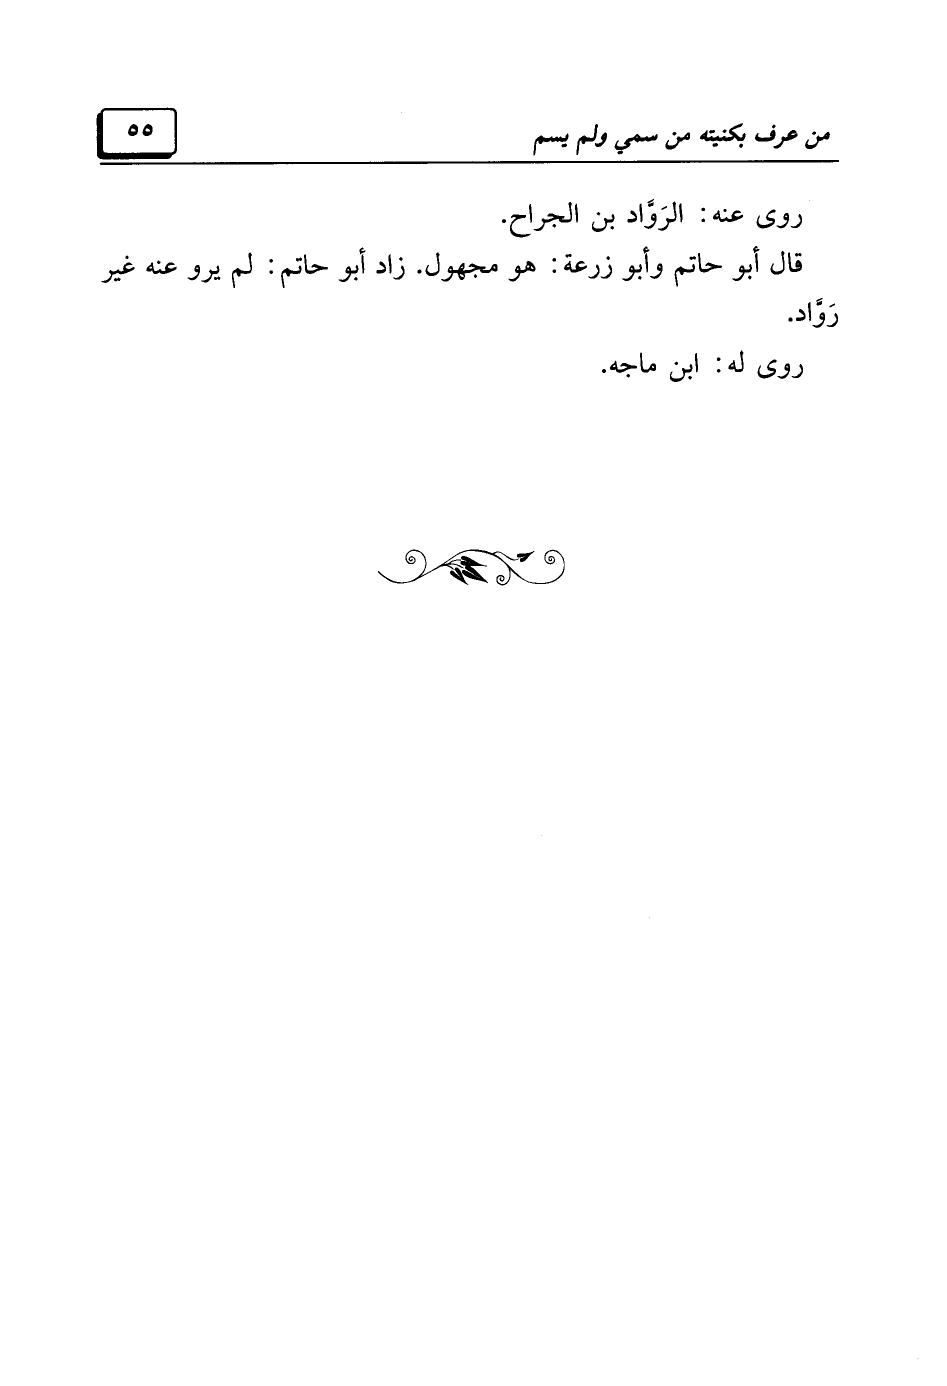 من عرف بكنيته من سمي ولم يسم
٥٥
روى عنه: الرَوَّاد بن الجراح.
قال أبو حاتم وأبو زرعة: هو مجهول. زاد أبو حاتم: لم يرو عنه غير
رَوَّاد.
روى له: ابن ماجه.